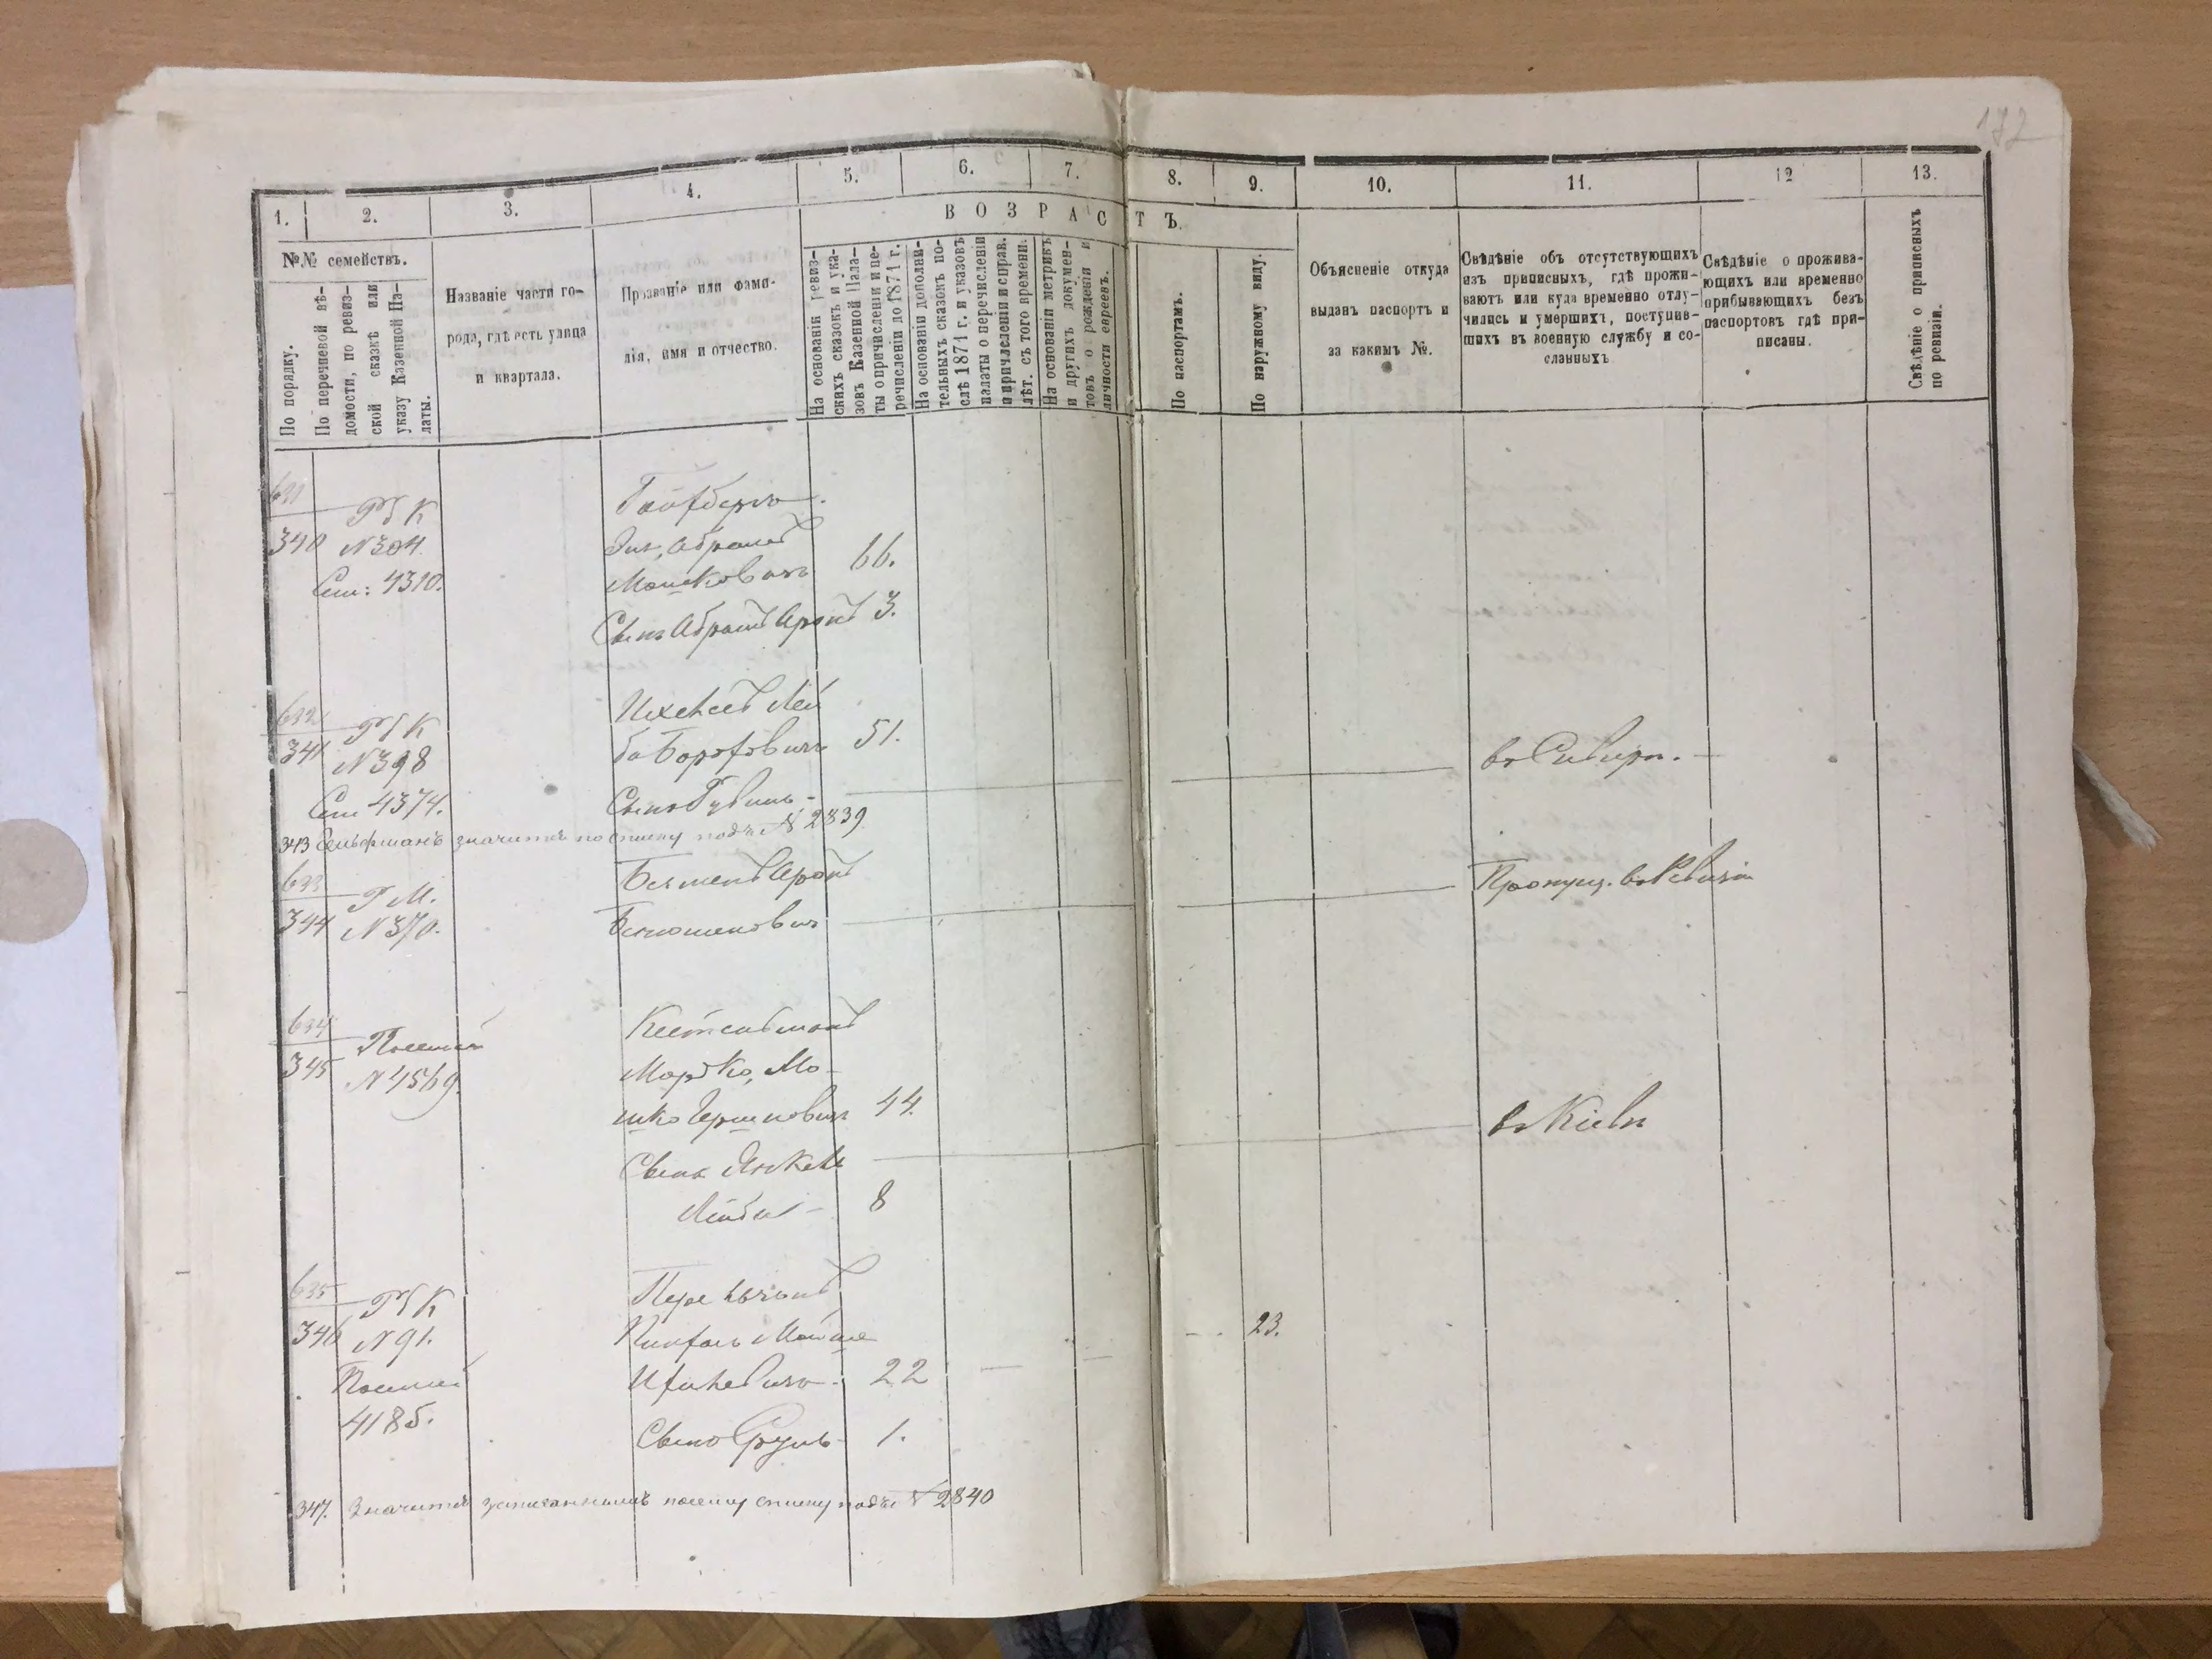 182
1. 2. 3. 4. 5. 6. 7. 8. 9. 10. 11. 12 13.
ВОЗРАСТЪ.
№№ семействъ.
По порядку.
По перечневой вѣ-
домости, по ревиз-
ской сказкѣ или
указу Казенной Па-
латы.
Названіе части го-
рода, гдѣ есть улица
и квартала.
Прозваніе или фами-
лія, имя и отчество.
На основаніи ревиз-
скихъ сказокъ и ука-
зовъ Казенной Пала-
ты о причисленіи и пе-
речисленіи до 1871 г.
На основаніи дополни-
тельныхъ сказокъ по-
слѣ 1871 г. и указовъ
палаты о перечисленіи
и причисленіи и справ.
лѣт. съ того времени.
На основаніи метрикъ
и другихъ докумен-
товъ о рожденіи и
личности евреевъ.
По паспортамъ.
По наружному виду.
Объясненіе откуда
выданъ паспортъ и
за какимъ №.
Свѣдѣніе объ отсутствующихъ
изъ приписныхъ, гдѣ прожи-
ваютъ или куда временно отлу-
чились и умершихъ, поступив-
шихъ въ военную службу и со-
сланныхъ
Свѣдѣніе о прожива-
ющихъ или временно
прибывающихъ безъ
паспортовъ гдѣ при-
писаны.
Свѣдѣніе о приписныхъ
по ревизіи.
631
340 N304.
Сем: 4310.
Абрамъ
Мошковичъ 66.
Сынъ Абрамъ Аронъ 3.
632
341 N398
Лей
ба 51. въ Сибири.
Сем 4374. Сынъ Рувинъ -
343 значится по списку подъ N 2839
633 Р М. Аронъ Пропущ. въ Ревизіи
344 N370.
634
345 N4569.
Мордко, Мо-
шко Гершковичъ 44. въ Кіевѣ
Сынъ Янкель
Лейба - 8
635
346 N91. Мойше 23.
Ицковичъ 22
4185. Сынъ Сруль 1.
347. Значится записаннымъ по сему списку подъ N 2840